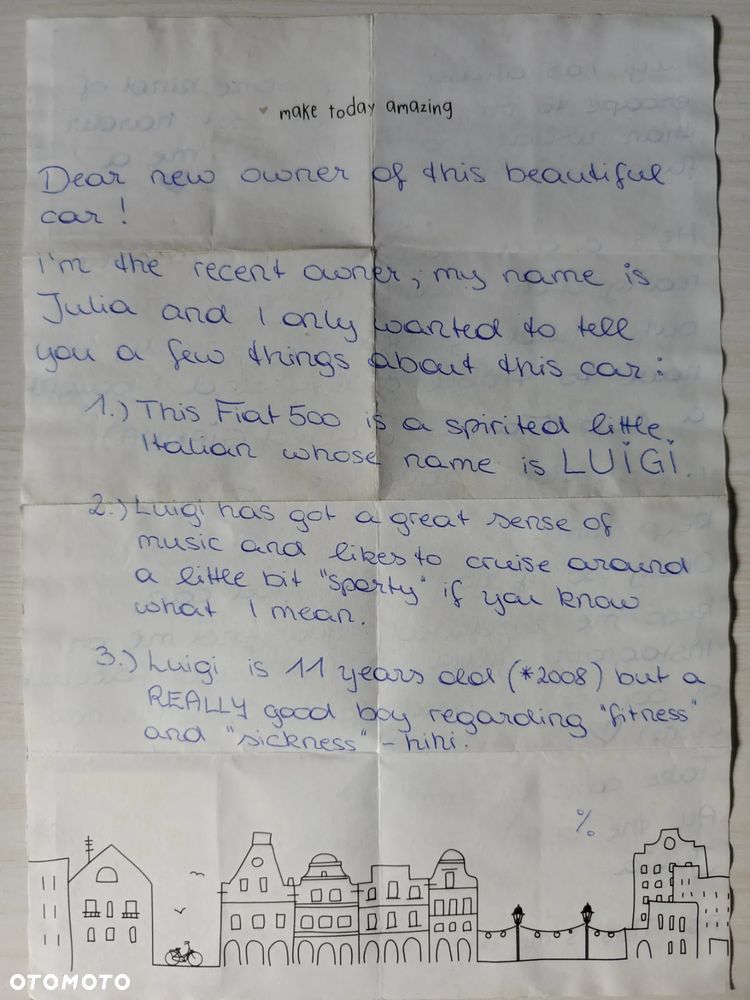 make today amazing
Dear new owner of this beautiful
car!
i'm the recent owner, my name is
Julia and I only wanted to tell
you a few things about this car:
1.) This Fiat 500 is a spirited little
Italian whose name is LUiGi.
2.) Luigi has got a great sense of
music and likes to cruise around
a little bit "sporty" if you know
what I mean.
3.) Luigi is 11 years old (*2008) but a
REALLY good boy regarding "fitness"
and "sickness" - hihi.
%
OTOMOTO